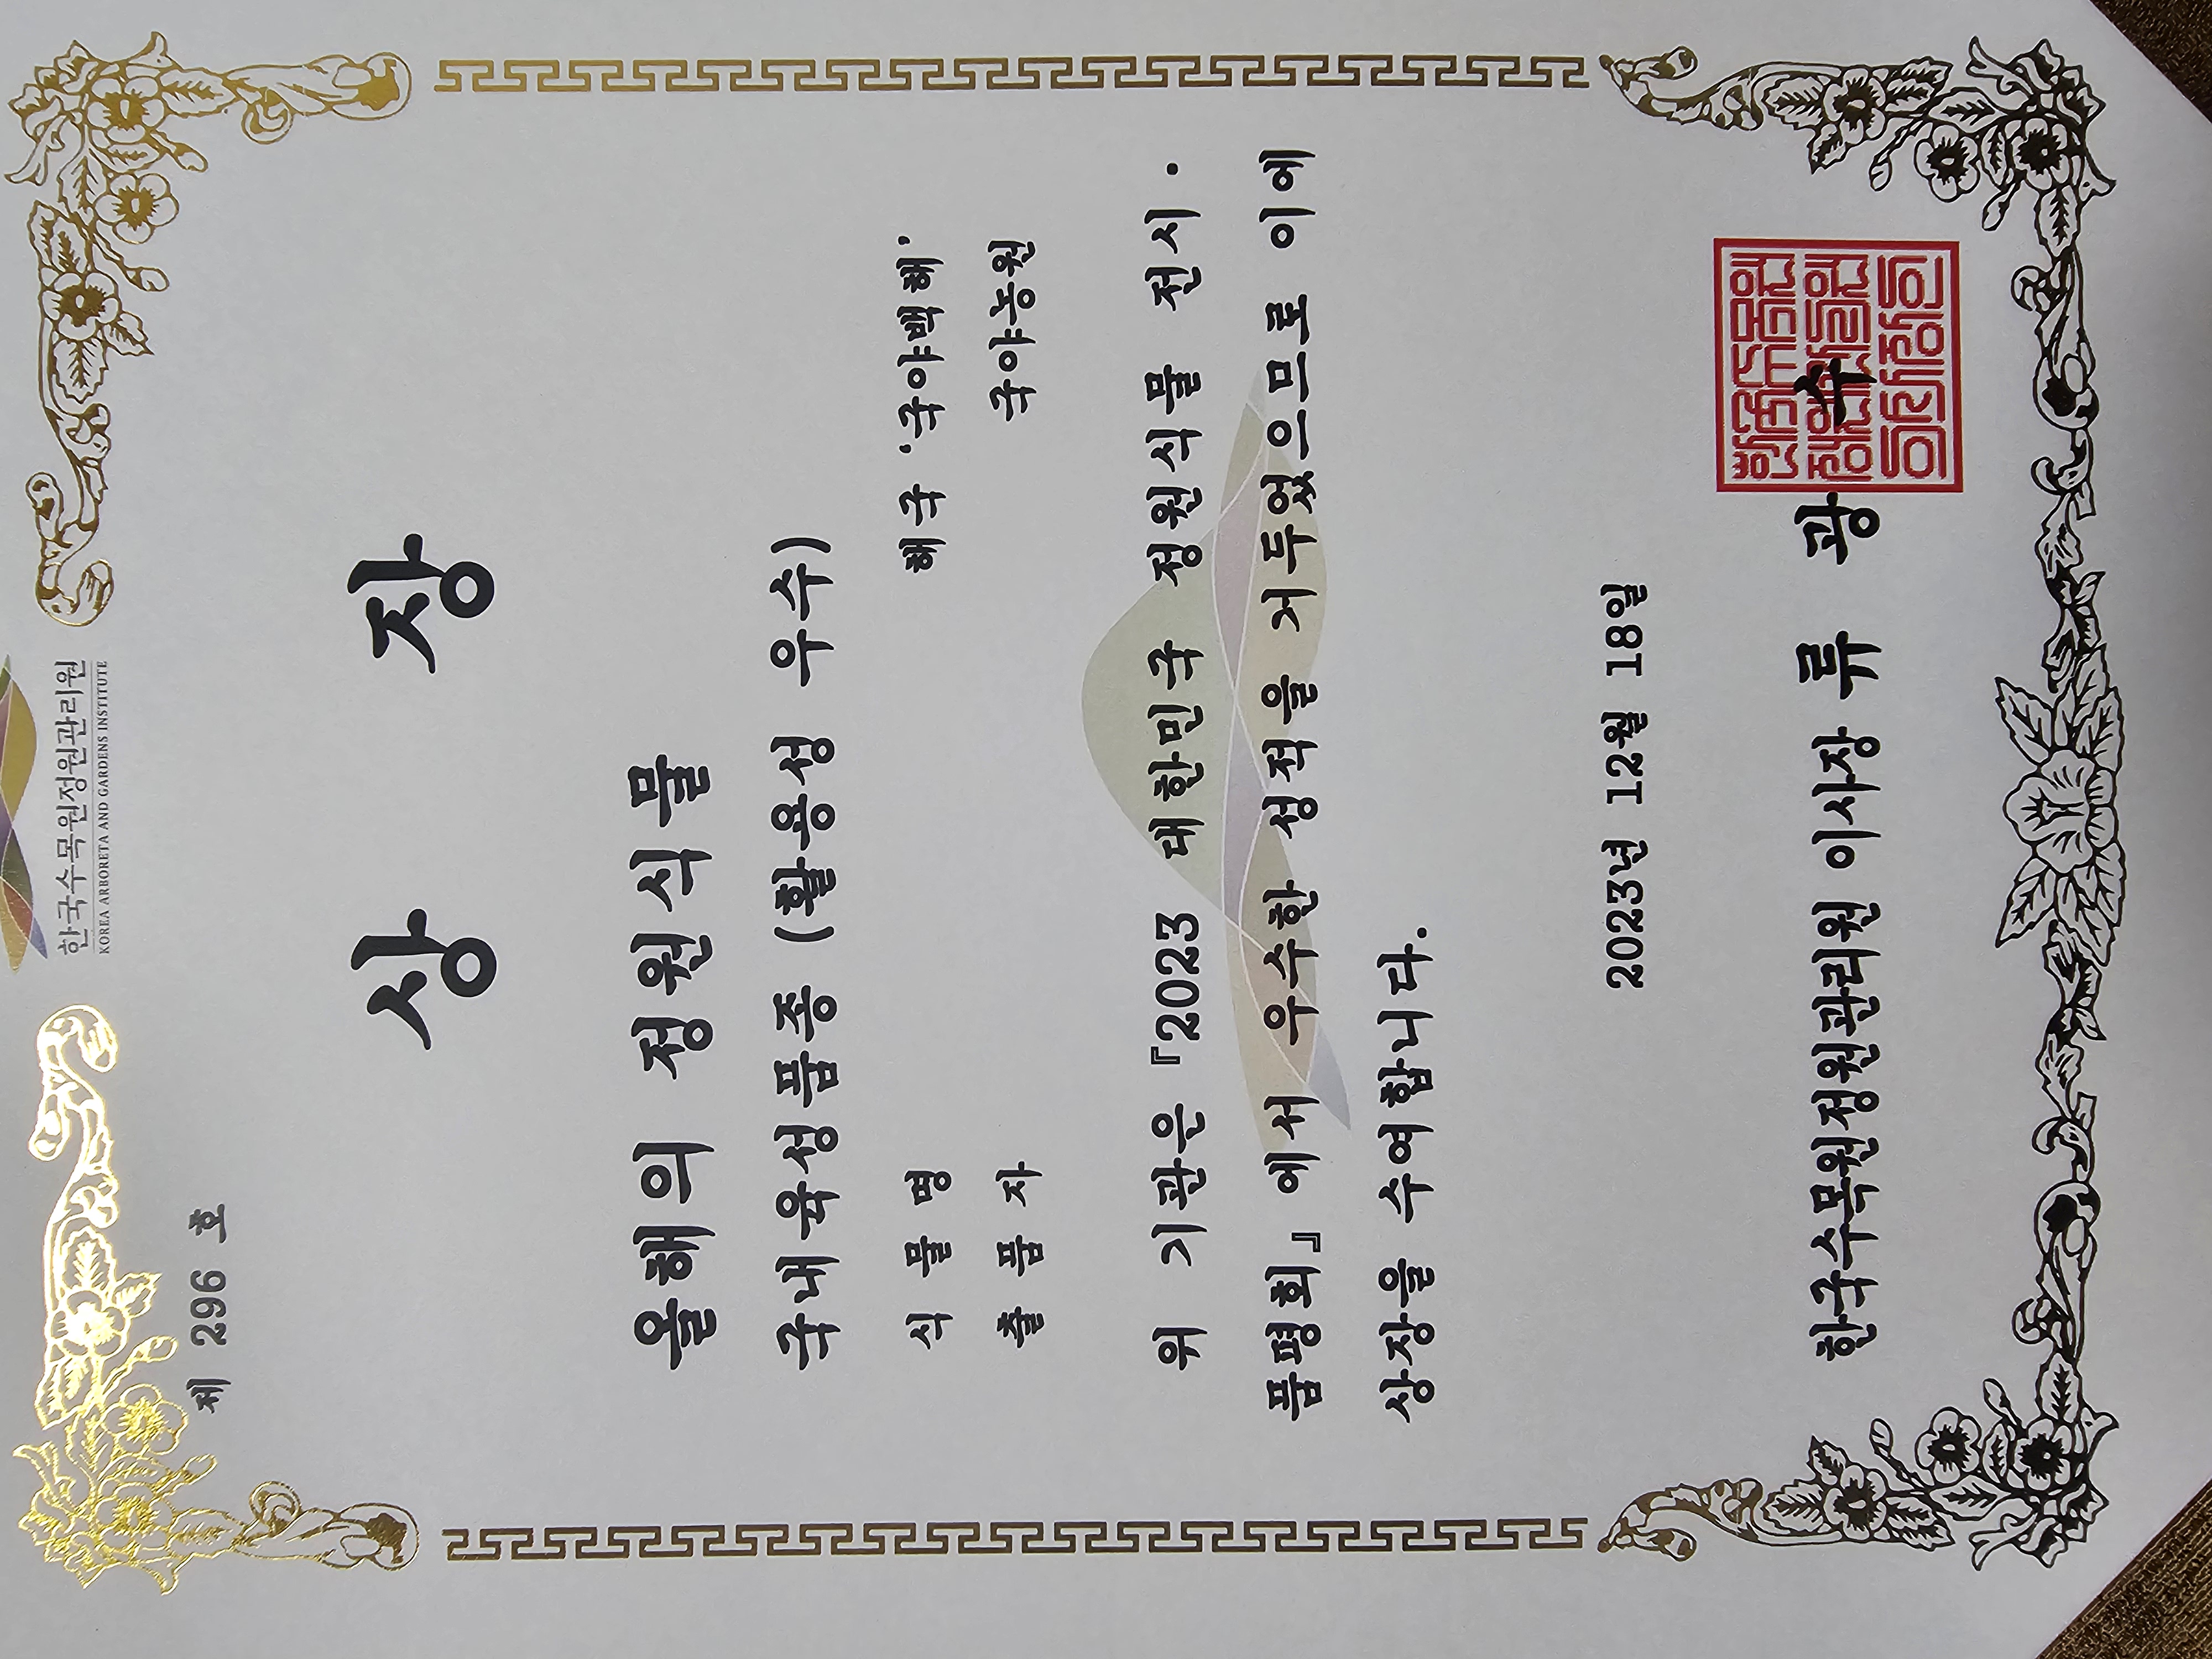 한국수목원정원관리원
KOREA ARBORETA AND GARDENS INSTITUTE
제 296 호
상 장
올해의 정원식물
국내육성품종 (활용성 우수)
식 물 명 해국 '국야백해'
출 품 자 국야농원
위 기관은 『2023 대한민국 정원식물 전시·
품평회』에서 우수한 성적을 거두었으므로 이에
상장을 수여합니다.
2023년 12월 18일
한국수목원정원관리원 이사장 류 광 수
한국수목원
정원관리원